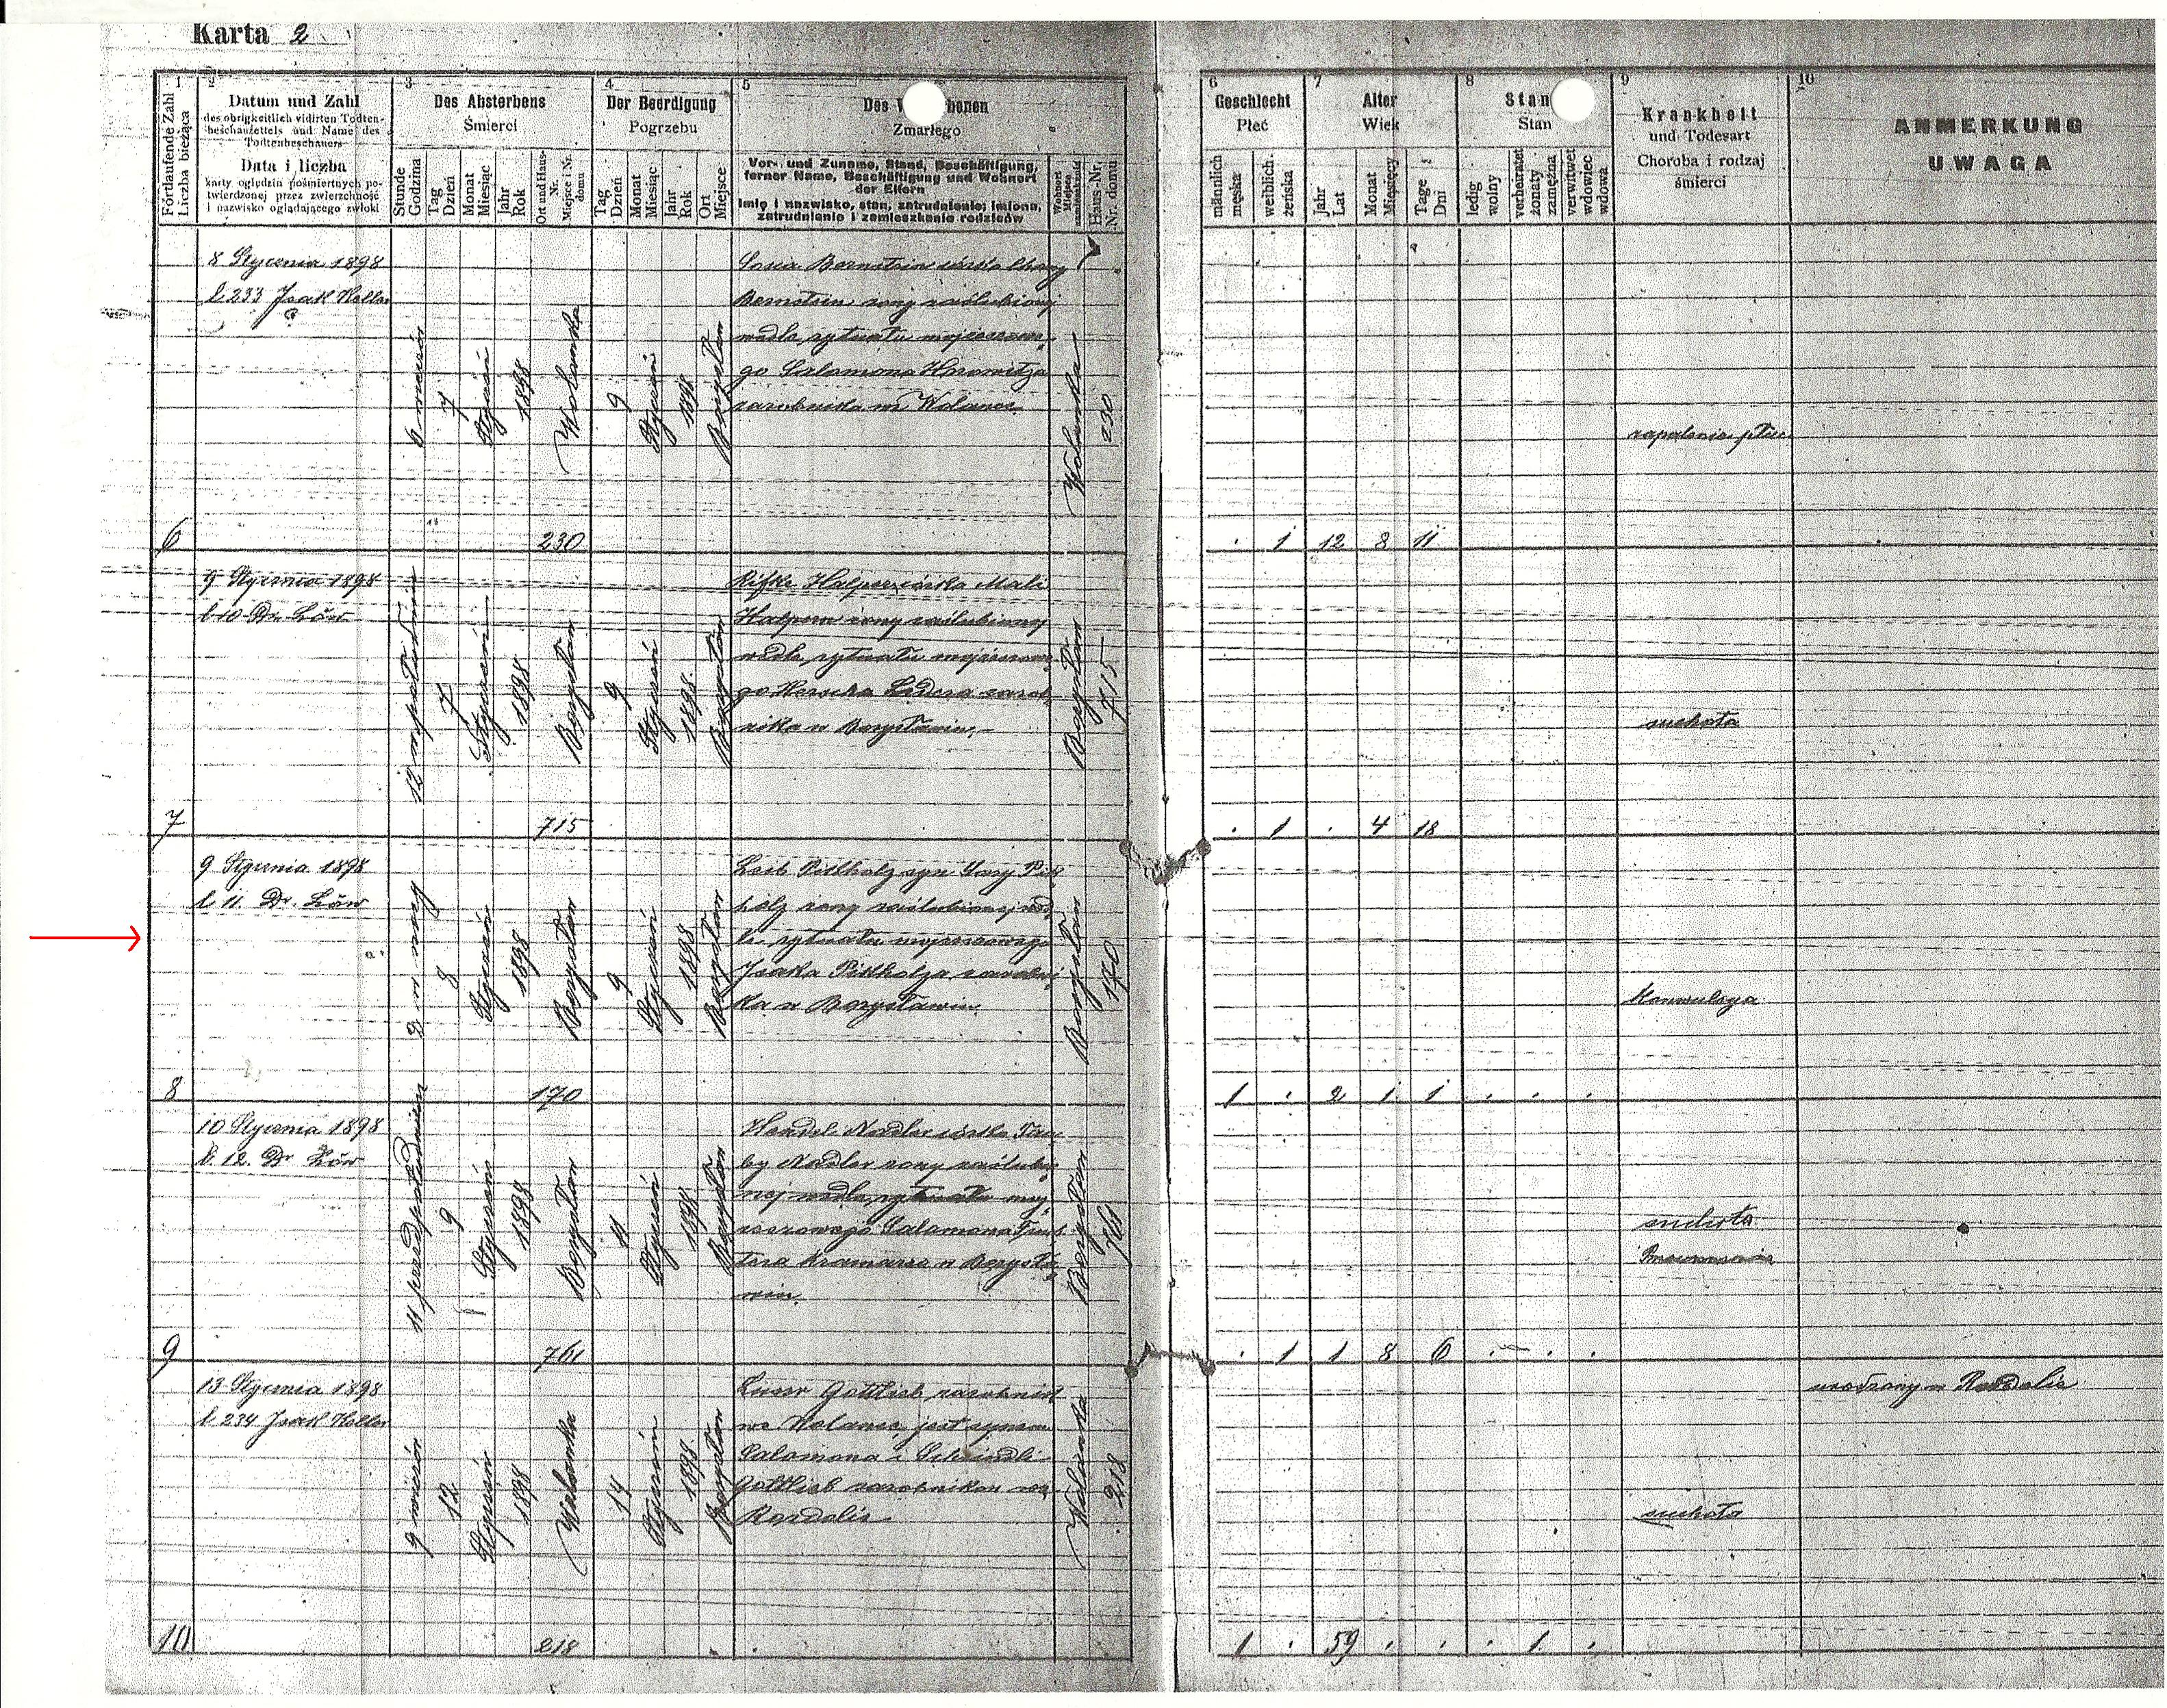 Karta 2
1
Fortlaufende Zahl
Liczba bieżąca
2
Datum und Zahl
des obrigkeitlich vidirten Todten-
beschauzettels und Name des
Todtenbeschauers
Data i liczba
karty oględzin pośmiertnych po-
twierdzonej przez zwierzchność
i nazwisko oglądającego zwłoki
3
Des Absterbens
Śmierci
Stunde
Godzina
Tag
Dzień
Monat
Miesiąc
Jahr
Rok
Ort und Haus-
Nr.
Miejsce i Nr.
domu
4
Der Beerdigung
Pogrzebu
Tag
Dzień
Monat
Miesiąc
Jahr
Rok
Ort
Miejsce
5
Des V benen
Zmarłego
Vor- und Zuname, Stand, Beschäftigung,
ferner Name, Beschäftigung und Wohnort
der Eltern
Imię i nazwisko, stan, zatrudnienie; imiona,
zatrudnienie i zamieszkanie rodziców
Wohnort
Miejsce
zamieszkania
Haus-Nr.
Nr. domu
6
Geschlecht
Płeć
männlich
męska
weiblich
żeńska
7
Alter
Wiek
Jahr
Lat
Monat
Miesięcy
Tage
Dni
8
Stan
Stan
ledig
wolny
verheiratet
żonaty
zamężna
verwitwet
wdowiec
wdowa
9
Krankheit
und Todesart
Choroba i rodzaj
śmierci
10
ANMERKUNG
UWAGA
8 Stycznia 1898
l 233 Isak Heller
7
Styczeń
1898
Wolanka
230
9
Styczeń
1898
Borysław
Bernstein córka
Bernstein żony zaślubionej
wedle rytuału mojżeszowe
go Salamona Horowitza
zarobnika w Wolance
Wolanka
230
zapalenie płuc
6
. 1 12 8 11
9 Stycznia 1898
l 10 Dr. Löw
12 w południe
7
Styczeń
1898
Borysław
715
9
Styczeń
1898
Borysław
Rifke Halpern córka Mali
Halpern żony zaślubionej
wedle rytuału mojżeszowe
go Herscha Ledera zarob
nika w Borysławiu
Borysław
715
suchota
7
. 1 . 4 18
9 Stycznia 1898
l 11. Dr. Löw
2 w nocy
8
Styczeń
1898
Borysław
170
9
Styczeń
1898
Borysław
Leib Pikholz syn Sary Pik
holz żony zaślubionej wed
le rytuału mojżeszowego
Isaka Pikholza zarobni
ka w Borysławiu.
Borysław
170
Konwulsya
8
1 . 2 1 1 . . .
10 Stycznia 1898
l. 12. Dr Löw
11 przed południem
9
Styczeń
1898
Borysław
761
11
Styczeń
1898
Borysław
Hendel Nadler córka Tau
by Nadler żony zaślubio
nej wedle rytuału moj
żeszowego Salamona
kramarza w Borysła
wiu.
Borysław
761
suchota
9
. 1 1 8 6 . . .
13 Stycznia 1898
l 234 Isak Heller
9 wieczór
12
Styczeń
1898
Wolanka
218
14
Styczeń
1898
Borysław
Gottlieb zarobnik
we Wolance jest synem
Salamona i Scheindli
Gottlieb zarobników we
Rozdolie
Wolanka
218
suchota
urodzony w Rozdolie
10
1 . 59 . . . 1 .